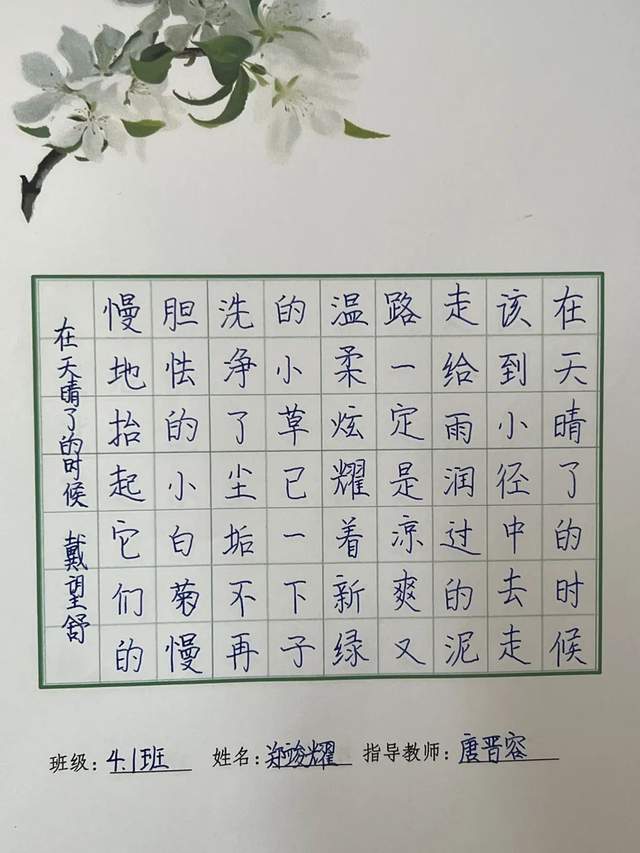 在天晴了的时候
该到小径中去走
走给雨润过的泥
路一定是凉爽又
温柔炫耀着新绿
的小草已一下子
洗净了尘垢不再
胆怯的小白菊慢
慢地抬起它们的
在天晴了的时候 戴望舒
班级：4.1班 姓名：郑竣耀 指导教师：唐晋容